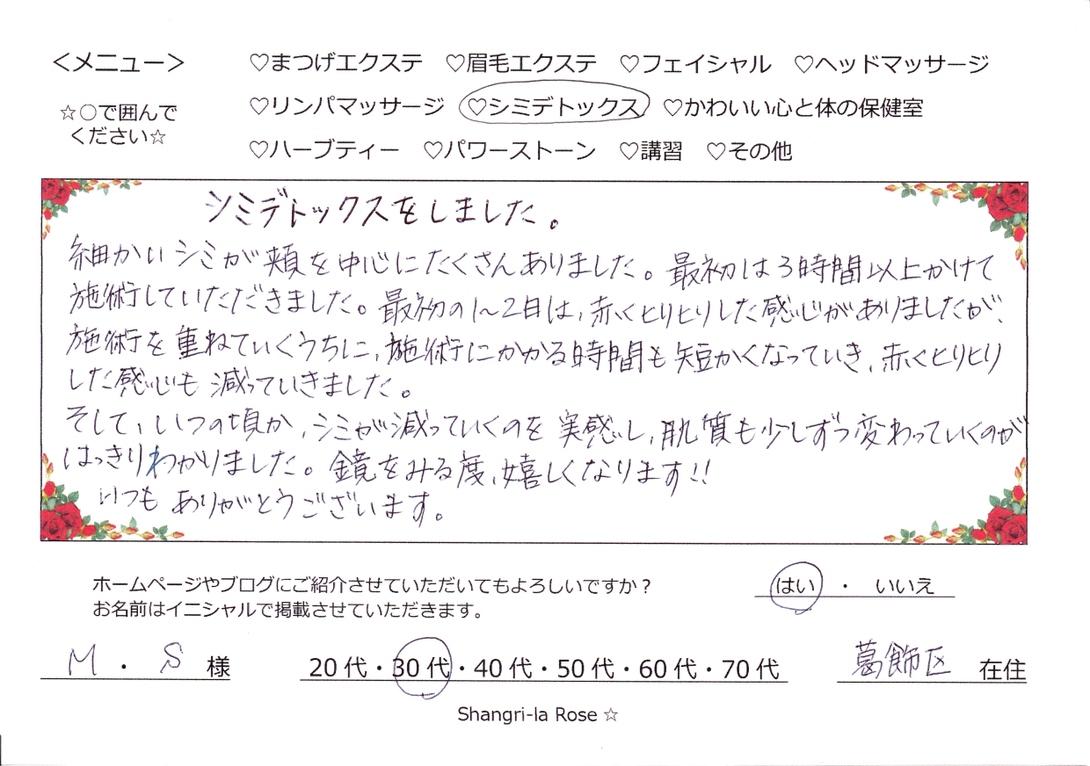 ＜メニュー＞ ♡まつげエクステ ♡眉毛エクステ ♡フェイシャル ♡ヘッドマッサージ
☆○で囲んで
ください☆
♡リンパマッサージ ♡シミデトックス ♡かわいい心と体の保健室
♡ハーブティー ♡パワーストーン ♡講習 ♡その他
シミデトックスをしました。
細かいシミが頬を中心にたくさんありました。最初は3時間以上かけて
施術していただきました。最初の1〜2日は、赤くヒリヒリした感じがありましたが、
施術を重ねていくうちに、施術にかかる時間も短かくなっていき、赤くヒリヒリ
した感じも減っていきました。
そして、いつの頃か、シミが減っていくのを実感し、肌質も少しずつ変わっていくのが
はっきりわかりました。鏡をみる度、嬉しくなります!!
いつもありがとうございます。
ホームページやブログにご紹介させていただいてもよろしいですか？ はい ・ いいえ
お名前はイニシャルで掲載させていただきます。
M ・ S 様 20代・30代・40代・50代・60代・70代 葛飾区 在住
Shangri-la Rose ☆